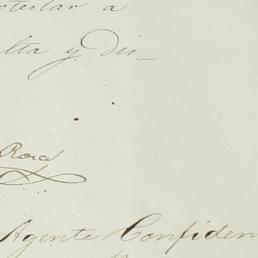 testar a
lta y Dis_
Rosa
Agente Confiden